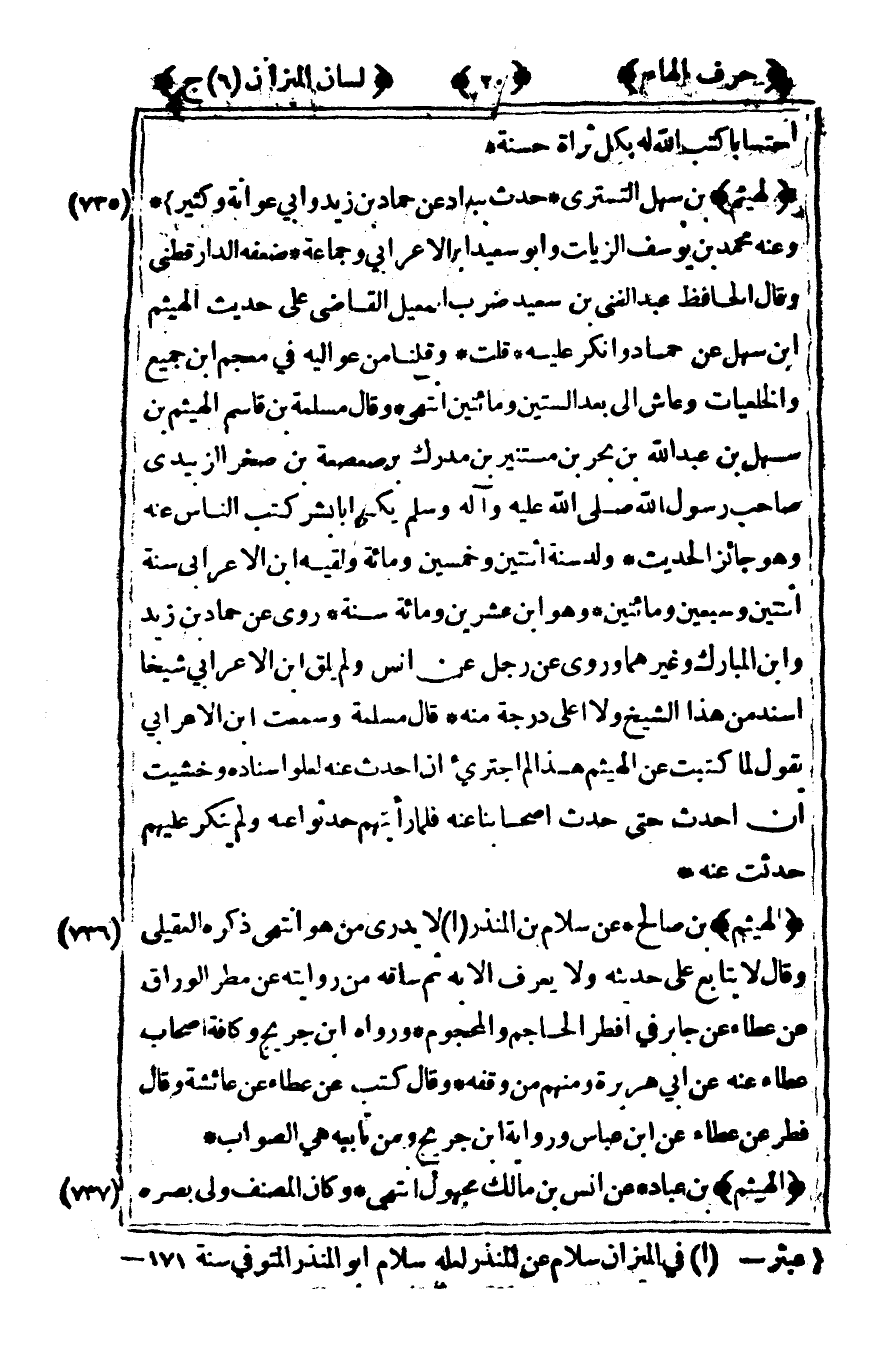 ﴿حرف الهاء﴾ ﴿٢٠٧﴾ ﴿لسان الميزان (٦) ج﴾
احتسابا كتب الله له بكل تراة حسنة*
﴿الهيثم﴾ بن سهل التسترى* حدث ببغداد عن حماد بن زيد وابي عوانة وكثير}* (٧٣٥)
وعنه محمد بن يوسف الزيات وابو سعيد ابن الاعرابي وجماعة* ضعفه الدار قطني
وقال الحافظ عبد الغني بن سعيد ضرب اسمعيل القاضى على حديث الهيثم
ابن سهل عن حماد وانكر عليه* قلت* وقلنا من عواليه في معجم ابن جميع
والخلعيات وعاش الى بعد الستين ومائتين انتهى* وقال مسلمة بن قاسم الهيثم بن
سهل بن عبد الله بن بحر بن مستنير بن مدرك بن صعصعة بن صخر الزبيدى
صاحب رسول الله صلى الله عليه وآله وسلم يكنى ابا بشر كتب الناس عنه
وهو جائز الحديث* ولد سنة اثنتين وخمسين ومائة ولقيه ابن الاعرابى سنة
اثنتين وسبعين ومائتين* وهو ابن عشرين ومائة سنة* روى عن حماد بن زيد
وابن المبارك وغيرهما وروى عن رجل عن انس ولم يلق ابن الاعرابي شيخا
اسند من هذا الشيخ ولا اعلى درجة منه* قال مسلمة وسمعت ابن الاعرابي
يقول لما كتبت عن الهيثم هذا لم اجترئ ان احدث عنه لعلو اسناده وخشيت
ان احدث حتى حدث اصحابنا عنه فلما رأيتهم حدثوا عنه ولم ينكر عليهم
حدثت عنه*
﴿الهيثم﴾ بن صالح* عن سلام بن المنذر (١) لا يدرى من هو انتهى ذكره العقيلى (٧٣٦)
وقال لا يتابع على حديثه ولا يعرف الا به ثم ساقه من روايته عن مطر الوراق
عن عطاء عن جابر في افطر الحاجم والمحجوم* ورواه ابن جريج وكافة اصحاب
عطاء عنه عن ابي هريرة ومنهم من وقفه* وقال كتب عن عطاء عن عائشة وقال
فطر عن عطاء عن ابن عباس ورواية ابن جريج ومن تابعه هي الصواب*
﴿الهيثم﴾ بن عباد* عن انس بن مالك مجهول انتهى* وكان المصنف ولى بصر* (٧٣٧)
{ عبثر — (١) في الميزان سلام عن المنذر لعله سلام ابو المنذر المتوفي سنة ١٧١ —